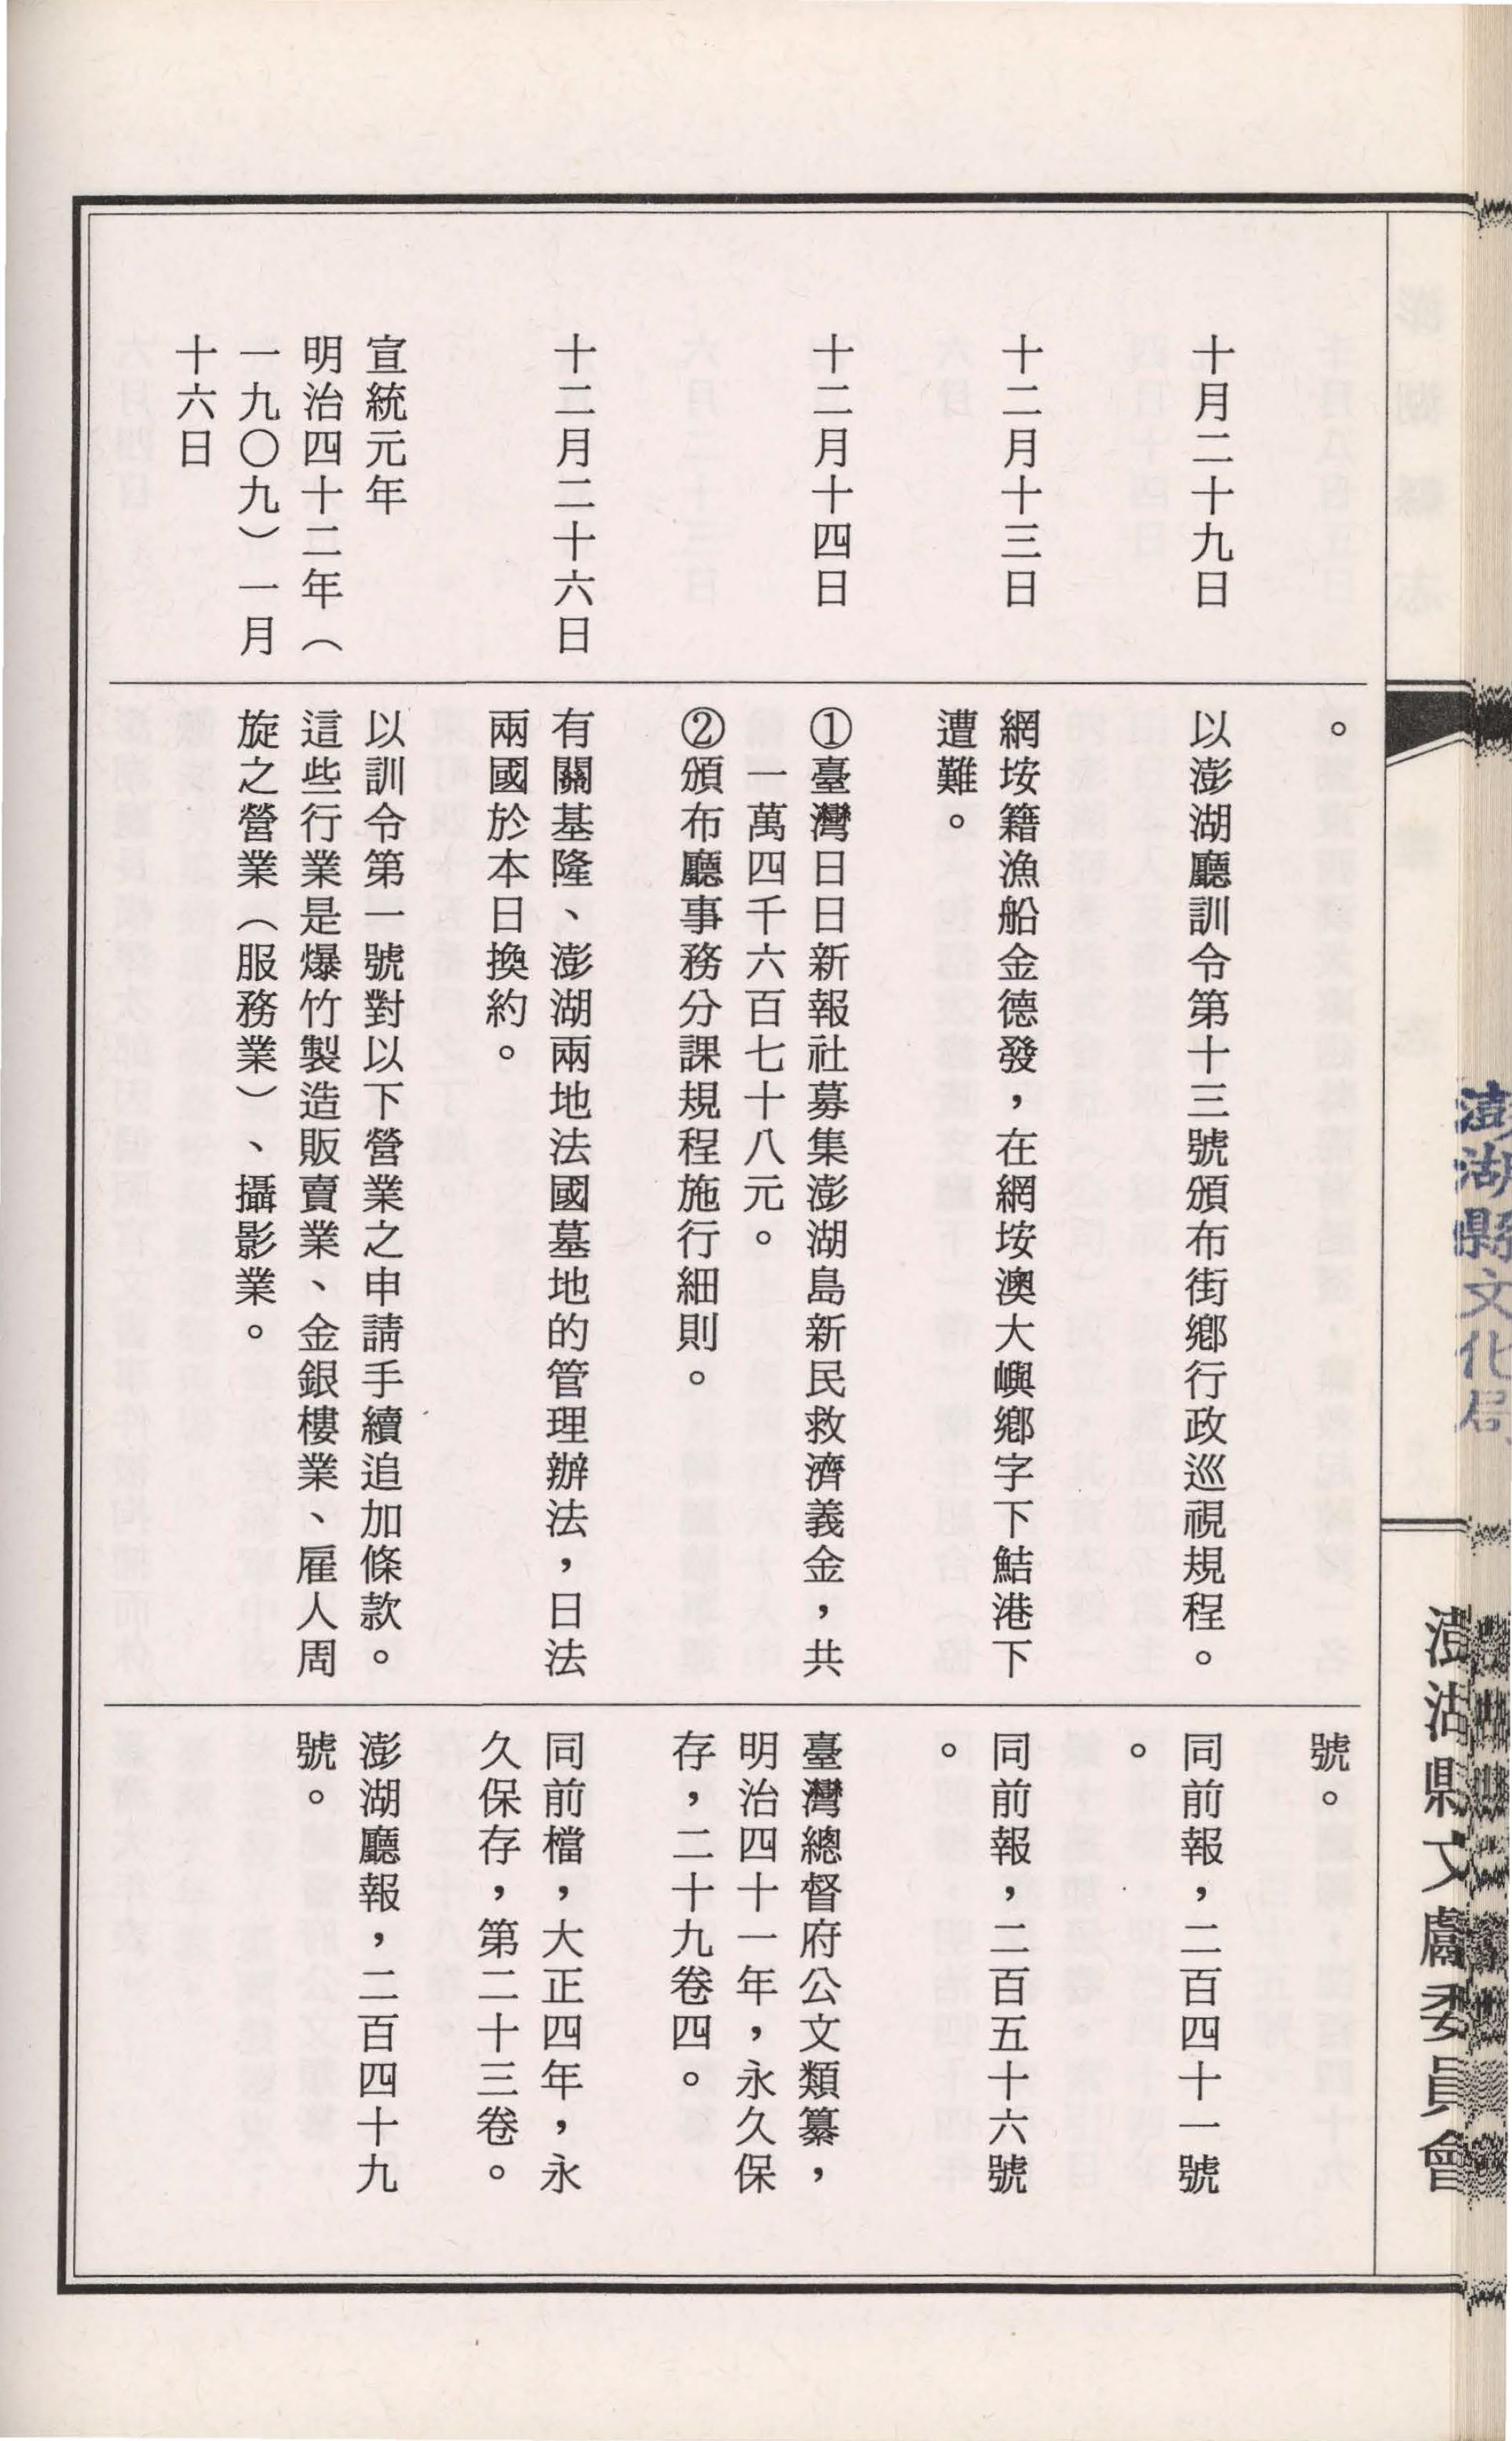 澎湖縣文化局
澎湖縣文獻委員會
。
號。
十月二十九日
以澎湖廳訓令第十三號頒布街鄉行政巡視規程。
同前報，二百四十一號
。
十二月十三日
網垵籍漁船金德發，在網垵澳大嶼鄉字下鮚港下
遭難。
同前報，二百五十六號
。
十二月十四日
①臺灣日日新報社募集澎湖島新民救濟義金，共
一萬四千六百七十八元。
②頒布廳事務分課規程施行細則。
臺灣總督府公文類纂，
明治四十一年，永久保
存，二十九卷四。
十二月二十六日
有關基隆、澎湖兩地法國墓地的管理辦法，日法
兩國於本日換約。
同前檔，大正四年，永
久保存，第二十三卷。
宣統元年
明治四十二年（
一九〇九）一月
十六日
以訓令第一號對以下營業之申請手續追加條款。
這些行業是爆竹製造販賣業、金銀樓業、雇人周
旋之營業（服務業）、攝影業。
澎湖廳報，二百四十九
號。